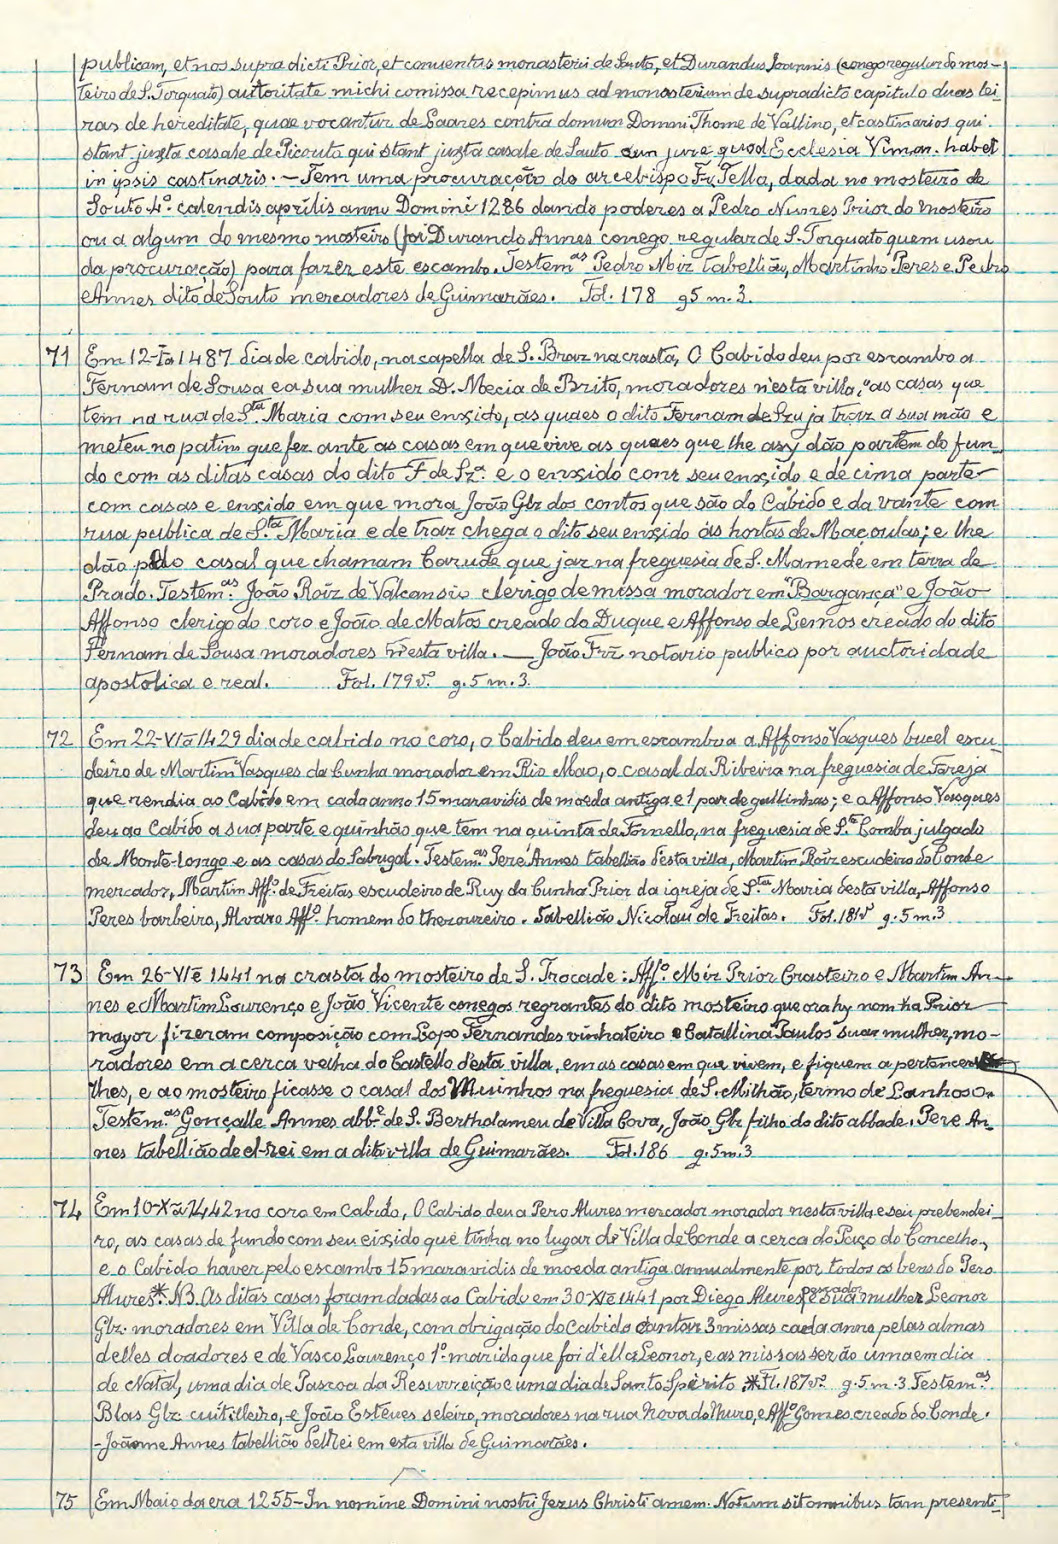 publicam, et nos supra dicti Prior, et conventus monasterii de Souto, et Durandus Joannis (conego regular do mos-
teiro de S. Torquato) autoritate michi comissa recepimus ad monasterium de supradicto capitulo duas lei
ras de hereditate, quae vocantur de Saares contra domum Domni Thome de Vallino, et castinarios qui
stant juxta casale de Picouto qui stant juxta casale de Sauto cun jure quod Ecclesia Viman. habet
in ipsis castinaris. — Tem uma procuração do arcebispo Fr. Tello, dada no mosteiro de
Souto 4º calendis aprilis anno Domini 1286 dando poderes a Pedro Nunes Prior do mosteiro
ou a algum do mesmo mosteiro (foi Durando Annes conego regular de S. Torquato quem usou
da procuração) para fazer este escambo. Testem.as Pedro Miz tabellião, Martinho Peres e Pedro
Annes dito de Souto mercadores de Guimarães. Fol. 178 g 5 m. 3.
71 Em 12-Iº 1487 dia de cabido, na capella de S. Braz na crasta, O Cabido deu por escambo a
Fernam de Sousa e a sua mulher D. Mecia de Brito, moradores n'esta villa, "as casas que
tem na rua de S.ta Maria com seu enxido, as quaes o dito Fernam de Szu ja traz a sua mão e
meteu no patim que fez ante as casas em que vive as quaes que lhe assy dão partem do fun_
do com as ditas casas do dito F de Sz.a e o enxido conz seu enxido e de cima parte
com casas e enxido em que mora João Glz dos contos que são do Cabido e da vante com
rua publica de S.ta Maria e de traz chega o dito seu enxido ás hortas de Maçoulas; e lhe
dão pelo casal que chamam Carude que jaz na freguesia de S. Mamede em terra de
Prado. Testem.as João Roiz de Valcansio clerigo de missa morador em "Bargança" e João
Affonso clerigo do coro e João de Matos creado do Duque e Affonso de Lemos creado do dito
Fernam de Sousa moradores n'esta villa. — João Frz notario publico por auctoridade
apostolica e real. Fol. 179 vº. g. 5 m. 3.
72 Em 22-VI-1429 dia de cabido no coro, o Cabido deu em escambo a Affonso Vasques bucel escu_
deiro de Martim Vasques da Cunha morador em Rio Mao, o casal da Ribeira na freguesia de Fareja
que rendia ao Cabido em cada anno 15 maravidis de moeda antiga e 1 par de gallinhas; e o Affonso Vasques
deu ao Cabido a sua parte e quinhão que tem na quinta de Fornello, na freguesia de S.ta Comba julgado
de Monte-Longo e as casas do Sabugal. Testem.as Pere Annes tabellião d'esta villa, Martim Roiz escudeiro do Conde
mercador, Martim Aff.º de Freitas escudeiro de Ruy da Cunha Prior da igreja de S.ta Maria desta villa, Affonso
Peres barbeiro, Alvaro Affº. homem do thezoureiro. Tabellião Nicolau de Freitas. Fol. 181 vº g. 5 m. 3
73 Em 26-VI-1441 na crasta do mosteiro de S. Trocade: Affº. Miz Prior Crasteiro e Martim An-
nes e Martim Lourenço e João Vicente conegos regrantes do dito mosteiro que ora hy nom ha Prior
mayor fizeram composição com Lopo Fernandes vinhateiro e Catallina Paulos sua mulher, mo-
radores em a cerca velha do Castello d'esta villa, em as casas em que vivem, e fiquem a pertencer
lhes, e ao mosteiro ficasse o casal dos Muinhos na freguesia de S. Milhão, termo de Lanhoso.
Testem.as Gonçalle Annes abb.e de S. Bertholameu de Villa Cova, João Glz filho do dito abbade. Pere An_
nes tabellião de el-rei em a dita villa de Guimarães. Fol. 186 g. 5 m. 3
74 Em 10-X-1442 no coro em Cabido, O Cabido deu a Pero Alures mercador morador nesta villa e seu prebendei_
ro, as casas de fundo com seu eixido que tinha no lugar de Villa de Conde a cerca do Paço do Concelho,
e o Cabido haver pelo escambo 15 maravidis de moeda antiga annualmente por todos os bens do Pero
Alures. * NB. As ditas casas foram dadas ao Cabido em 30-XI-1441 por Diego Alures pescador e sua mulher Leonor
Glz. moradores em Villa de Conde, com obrigação do Cabido cantar 3 missas cada anno pelas almas
delles doadores e de Vasco Lourenço 1º marido que foi d'ella Leonor, e as missas serão uma em dia
de Natal, uma dia de Pascoa da Resurreição e uma dia de Santo Spirito. * Fl. 187 vº. g. 5 m. 3 Testem.as
Blas Glz cuitilleiro, e João Esteves seleiro, moradores na rua Nova do Muro, e Affº Gomes creado do Conde.
- Joãone Annes tabellião del Rei em esta villa de Guimarães.
75 Em Maio da era 1255 - In nomine Domini nostri Jezus Christi amem. Notum sit omnibus tam presenti_